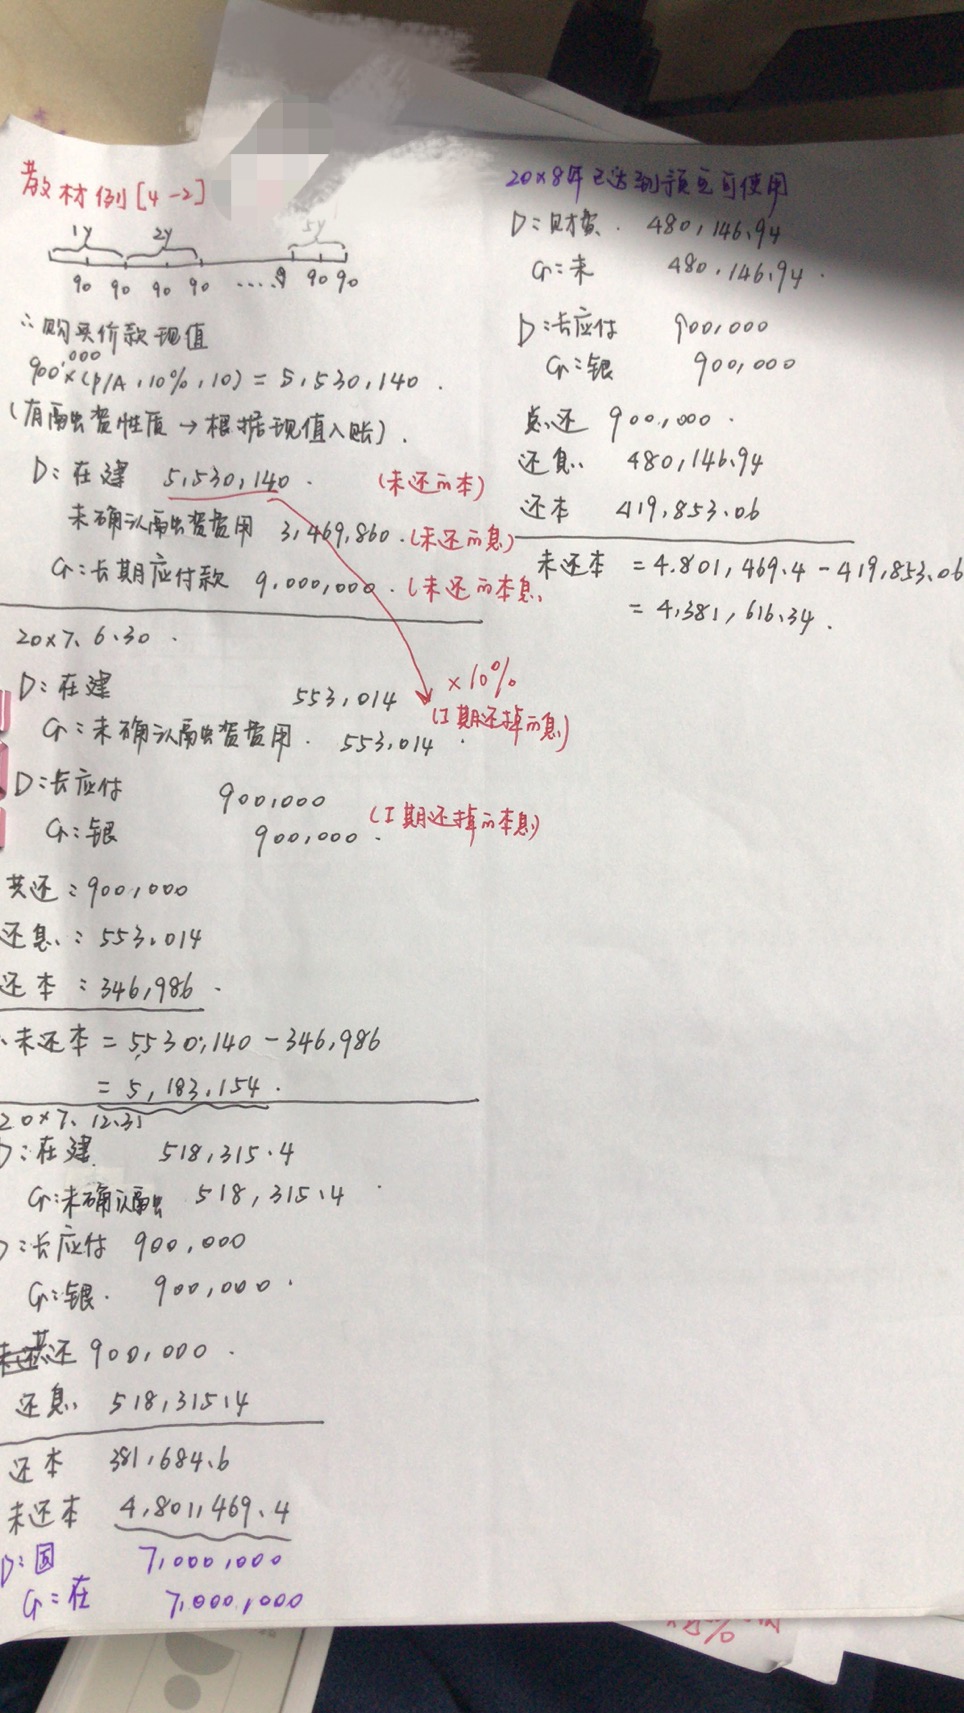 教材例[4-2]
1y 2y 5y
90 90 90 90 ..... 9 90 90
∴购买价款现值
900,000×(P/A,10%,10) = 5,530,140.
(有融资性质→根据现值入账).
D:在建 5,530,140. (未还的本)
未确认融资费用 3,469,860. (未还的息)
Cr:长期应付款 9,000,000. (未还的本息)
20×7.6.30.
D:在建 553,014 ×10%
(I期还掉的息)
Cr:未确认融资费用. 553,014.
D:长应付 900,000
(I期还掉的本息)
Cr:银 900,000.
共还:900,000
还息:553,014
还本:346,986.
∴未还本 = 5530,140 - 346,986
= 5,183,154.
20×7.12.31
D:在建 518,315.4
Cr:未确认融 518,315.4
D:长应付 900,000
Cr:银. 900,000.
共还 900,000.
还息 518,315.4
还本 381,684.6
未还本 4,801,469.4
D:固 7,000,000
Cr:在 7,000,000
20×8年已达到预定可使用
D:财费. 480,146.94
Cr:未 480,146.94.
D:长应付 900,000
Cr:银 900,000
总还 900,000.
还息 480,146.94
还本 419,853.06
未还本 = 4,801,469.4 - 419,853.06
= 4,381,616.34.